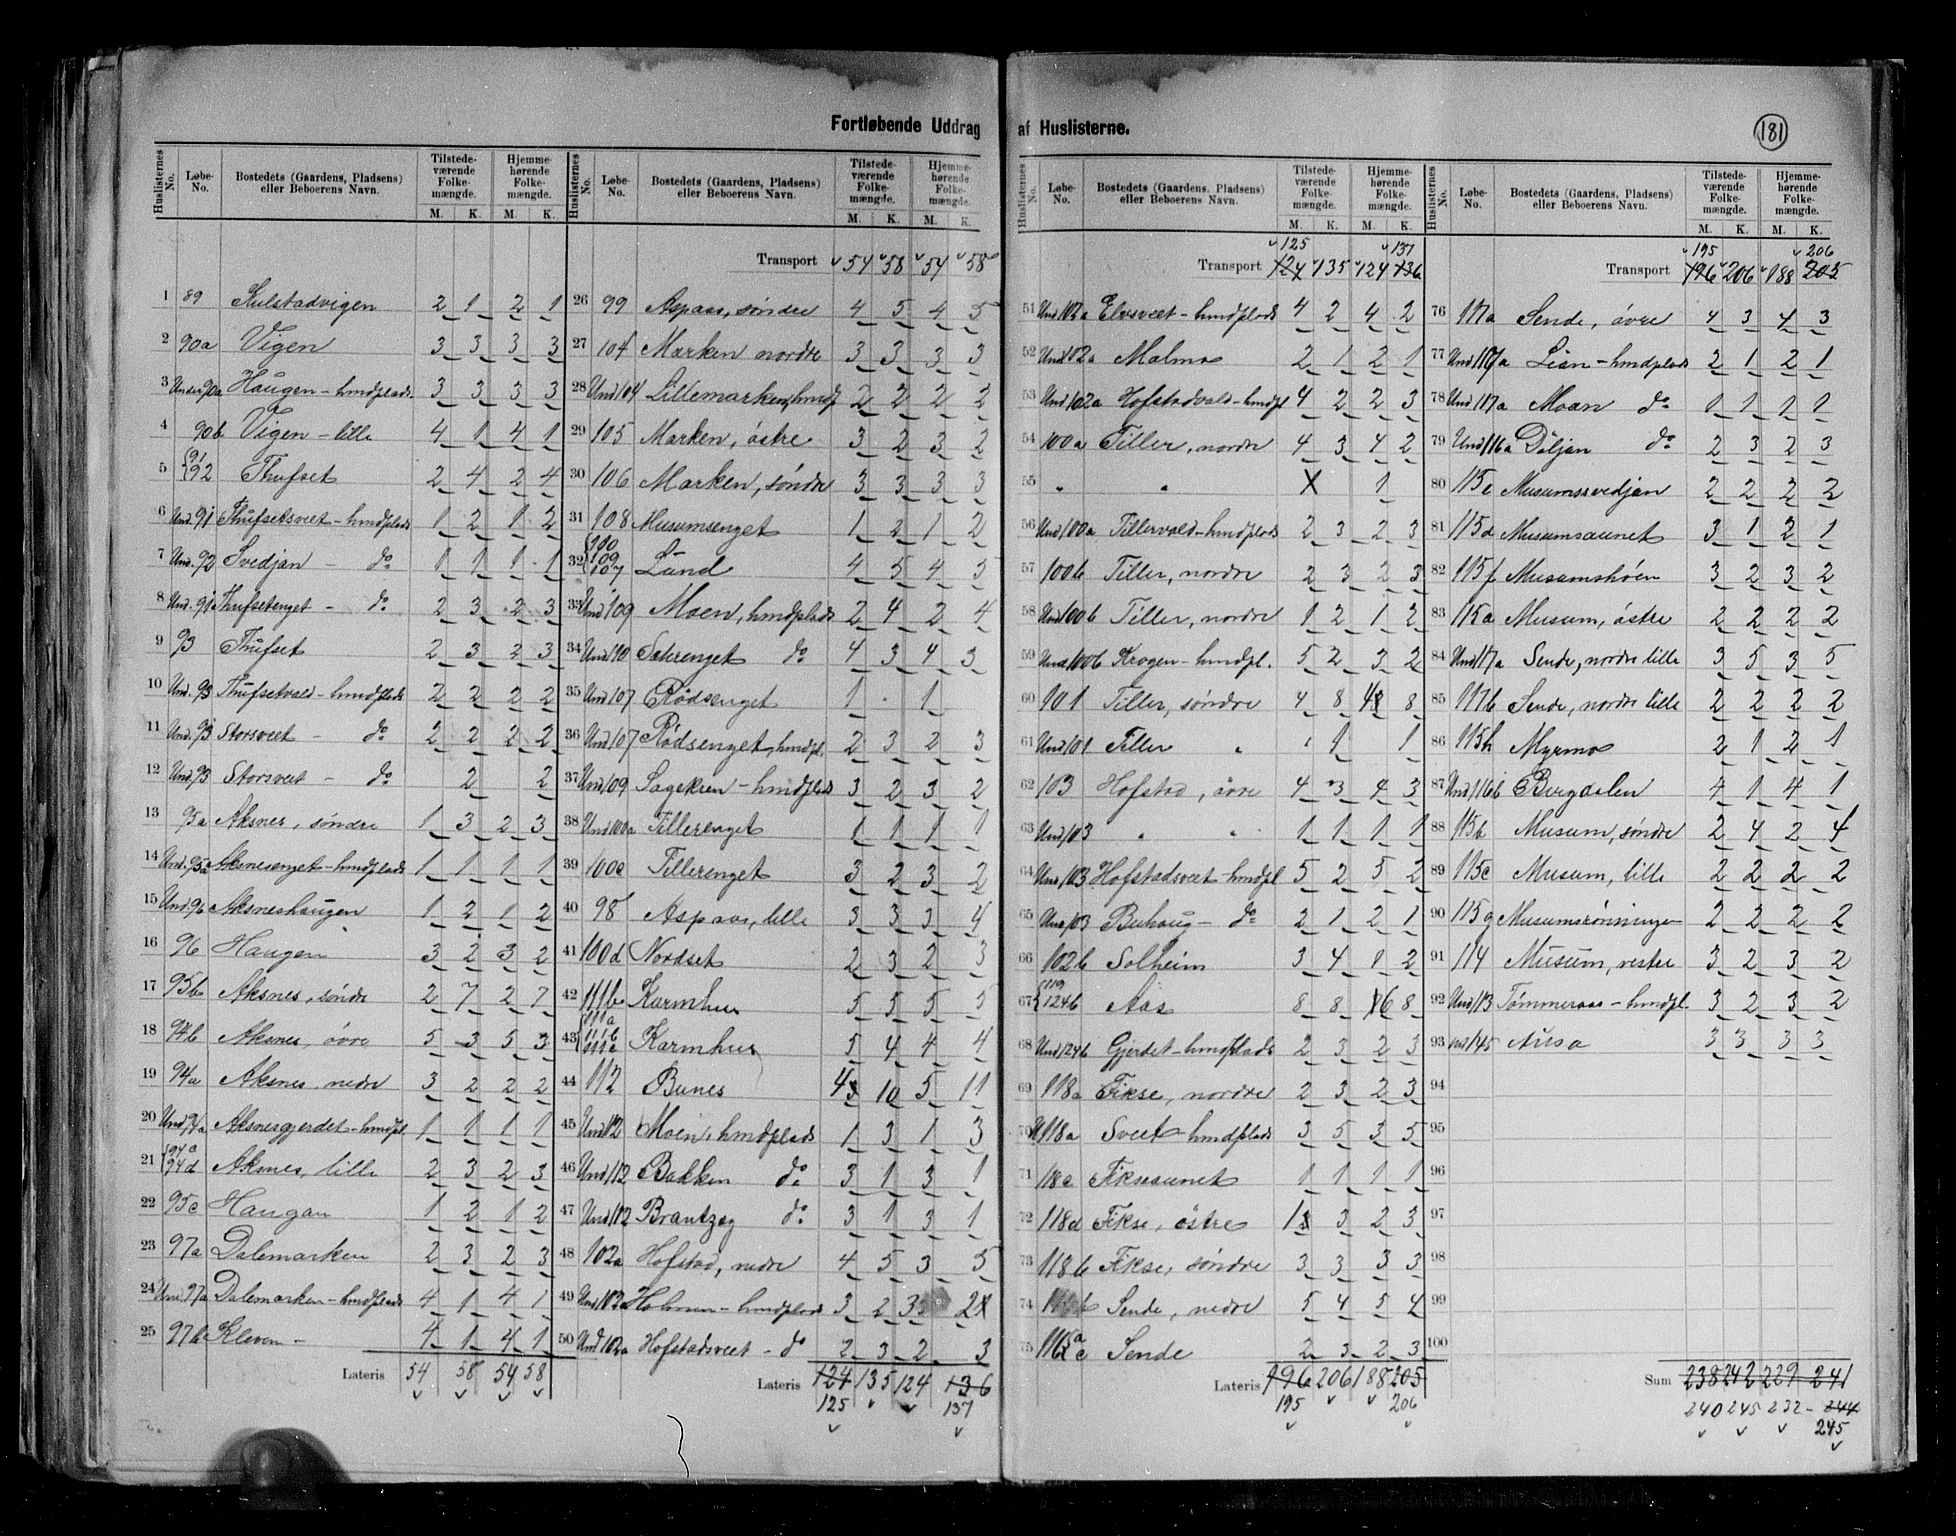 Fortløbende Uddrag af Huslisterne.
181
Huslisternes No. Løbe-No. Bostedets (Gaardens, Pladsens) eller Beboerens Navn. Tilstedeværende Folkemængde. M. K. Hjemmehørende Folkemængde. M. K.
1 89 Kulstadvigen 2 1 2 1
2 90a Vigen 3 3 3 3
3 Under 90a Haugen - hmdplads 3 3 3 3
4 90b Vigen - lille 4 1 4 1
5 91 92 Thufset 2 4 2 4
6 Und. 91 Thufsetsveet - hmdplads 1 2 1 2
7 Und. 92 Svedjan - do 1 1 1 1
8 Und. 91 Thufsetenget - do 2 3 2 3
9 93 Thufset 2 3 2 3
10 Und. 93 Thufsetvald - hmdplads 2 2 2 2
11 Und. 93 Storsveet - do 2 2 2 2
12 Und. 93 Storsveet - do 2 2
13 95a Aksnes, søndre 1 3 2 3
14 Und. 95a Aksnesenget - hmdplads 1 1 1 1
15 Und 96 Aksneshaugen 1 2 1 2
16 96 Haugen 3 2 3 2
17 95b Aksnes, søndr 2 7 2 7
18 94b Aksnes, øvre 5 3 5 3
19 94a Aksnes nedre 3 2 2 2
20 Und 94a Aksnesgjerdet - hmdpl 1 1 1 1
21 94c 94d Aksnes, lille 2 3 2 3
22 95c Haugan 1 2 1 2
23 97a Dalemarken 2 3 2 3
24 Und. 97a Dalemarken - hmdplads 4 1 4 1
25 97b Kleven - 4 1 4 1
Lateris 54 58 54 58
Huslisternes No. Løbe-No. Bostedets (Gaardens, Pladsens) eller Beboerens Navn. Tilstedeværende Folkemængde. M. K. Hjemmehørende Folkemængde. M. K.
Transport 54 58 54 58
26 99 Aspaas, søndre 4 5 4 5
27 104 Marken nordre 3 3 3 3
28 Und 104 Lillemarken, hmdp 2 2 2 2
29 105 Marken, østre 3 2 3 2
30 106 Marken, søndre 3 3 3 3
31 108 Musumsenget 1 2 1 2
32 110 109 107 Lund 4 5 4 5
33 Und 109 Moen, hmdplads 2 4 2 4
34 Und 110 Seterenget do 4 3 4 3
35 Und 107 Rødsenget 1 1
36 Und 107 Rødsenget, hmdpl. 2 3 2 3
37 Und 109 Sagekren - hmdplads 3 2 3 2
38 Und 100a Tillerenget 1 1 1 1
39 100c Tillerenget 3 2 3 2
40 98 Aspaas, lille 3 3 3 4
41 100d Nordset 2 3 2 3
42 111b Karmhus 5 5 5 5
43 111a 111b 111c Karmhus 5 4 4 4
44 112 Bunes 4 10 5 11
45 Und 112 Moen, hmdplads 1 3 1 3
46 Und 112 Bakken do 3 1 3 1
47 Und 112 Brantzeg do 3 1 3 1
48 102a Hofstad, nedre 4 5 3 5
49 Und 102a Holmen - hmdplads 3 2 3 2
50 Und 102a Hofstadsveet - do 2 3 2 3
Lateris 124 135 124 136
125 137
Huslisternes No. Løbe-No. Bostedets (Gaardens, Pladsens) eller Beboerens Navn. Tilstedeværende Folkemængde. M. K. Hjemmehørende Folkemængde. M. K.
125 137
Transport 124 135 124 136
51 Und 102a Elvsveet - hmdplads 4 2 4 2
52 Und 102a Malmo 2 1 2 1
53 Und 102a Hofstadvald - hmdpl 4 2 2 3
54 100a Tiller, nordre 4 3 4 2
55 " " X 1
56 Und 100a Tillervald - hmdplads 2 3 2 3
57 100b Tiller, nordre 2 3 2 3
58 Und 100b Tiller, nordre 1 2 1 2
59 Und 100b Krogen - hmdpl. 5 2 3 2
60 101 Tiller, søndre 4 8 4 8
61 Und 101 Tiller " 1 1
62 103 Hofstad, øvre 4 3 4 3
63 Und 103 " " 1 1 1 1
64 Und 103 Hofstadsveet - hmdpl 5 2 5 2
65 Und 103 Buhaug - do 2 1 2 1
66 102b Solheim 3 4 1 2
67 119 124b Aas 8 8 6 8
68 Und 124b Gjerdet - hmdplads 2 3 2 3
69 118a Fikse, nordre 2 3 2 3
70 U 118a Sveet - hmdplads 3 5 3 5
71 118c Fiksesaunet 1 1 1 1
72 118d Fikse, østre 1 3 2 3
73 118b Fikse, søndre 3 3 3 3
74 Sende, nedre 5 4 5 4
75 116 a c Sende 2 3 2 3
Lateris 196 206 188 205
195 206
Huslisternes No. Løbe-No. Bostedets (Gaardens, Pladsens) eller Beboerens Navn. Tilstedeværende Folkemængde. M. K. Hjemmehørende Folkemængde. M. K.
195 206
Transport 196 206 188 205
76 117a Sende, øvre 4 3 4 3
77 Und 117a Lian - hmdplads 2 1 2 1
78 Und 117a Moan do 1 1 1 1
79 Und 116a Døljan do 2 3 2 3
80 115e Musumssvedjan 2 2 2 2
81 115d Musumsaunet 3 1 2 1
82 115f Musumshøen 3 2 3 2
83 115a Musum, østre 2 2 2 2
84 Und 117a Sende, nordre lille 3 5 3 5
85 117b Sende, nordre lille 2 2 2 2
86 115h Myrmo 2 1 2 1
87 Und 116b Bergdalen 4 1 4 1
88 115b Musum, søndre 2 4 2 4
89 115c Musum, lille 2 2 2 2
90 115g Musumsrønningen 2 2 2 2
91 114 Musum, vestre 3 2 3 2
92 Und 113 Tømmeraas - hmdpl. 3 2 3 2
93 145 Ausa 3 3 3 3
94
95
96
97
98
99
100
Sum 238 242 229 241
240 245 232 244
245